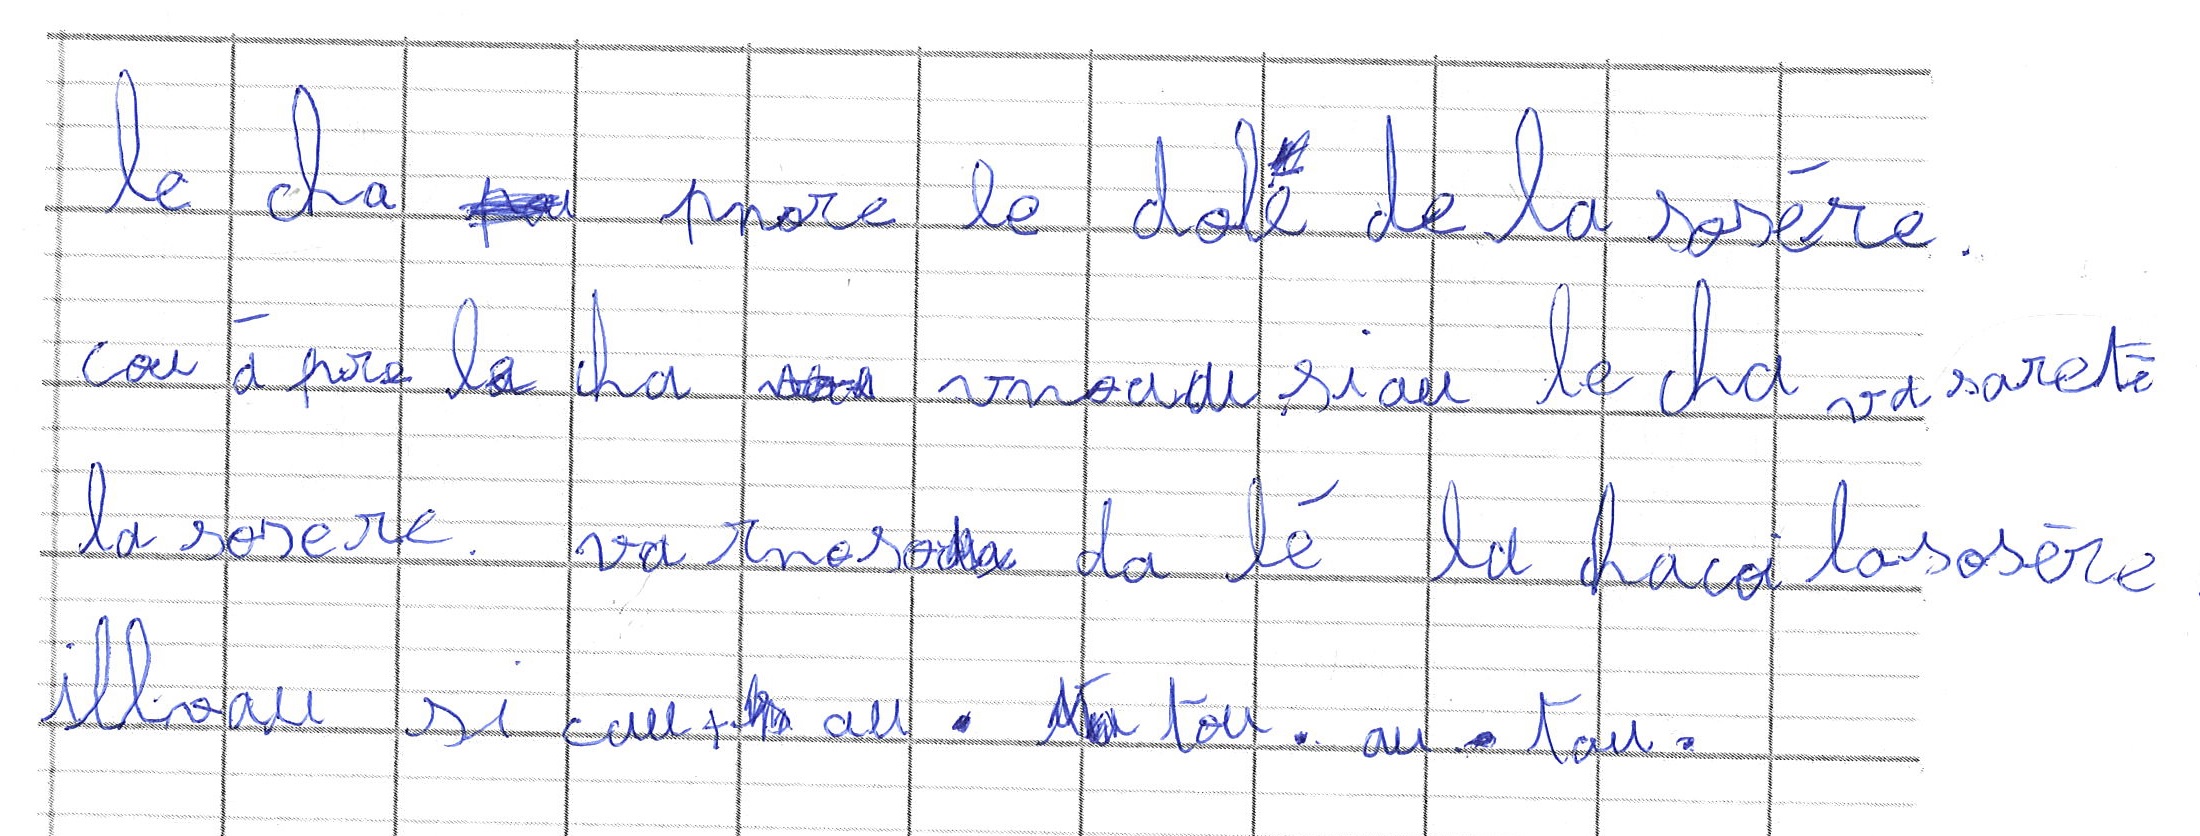 le cha pnore le dolé de la sosére.
cou à pre la cha vnoudu siau le cha va sareté
la sosere. va rnoso da lé la chacoi la sosère
illoau si cau au. tou. au. tau.